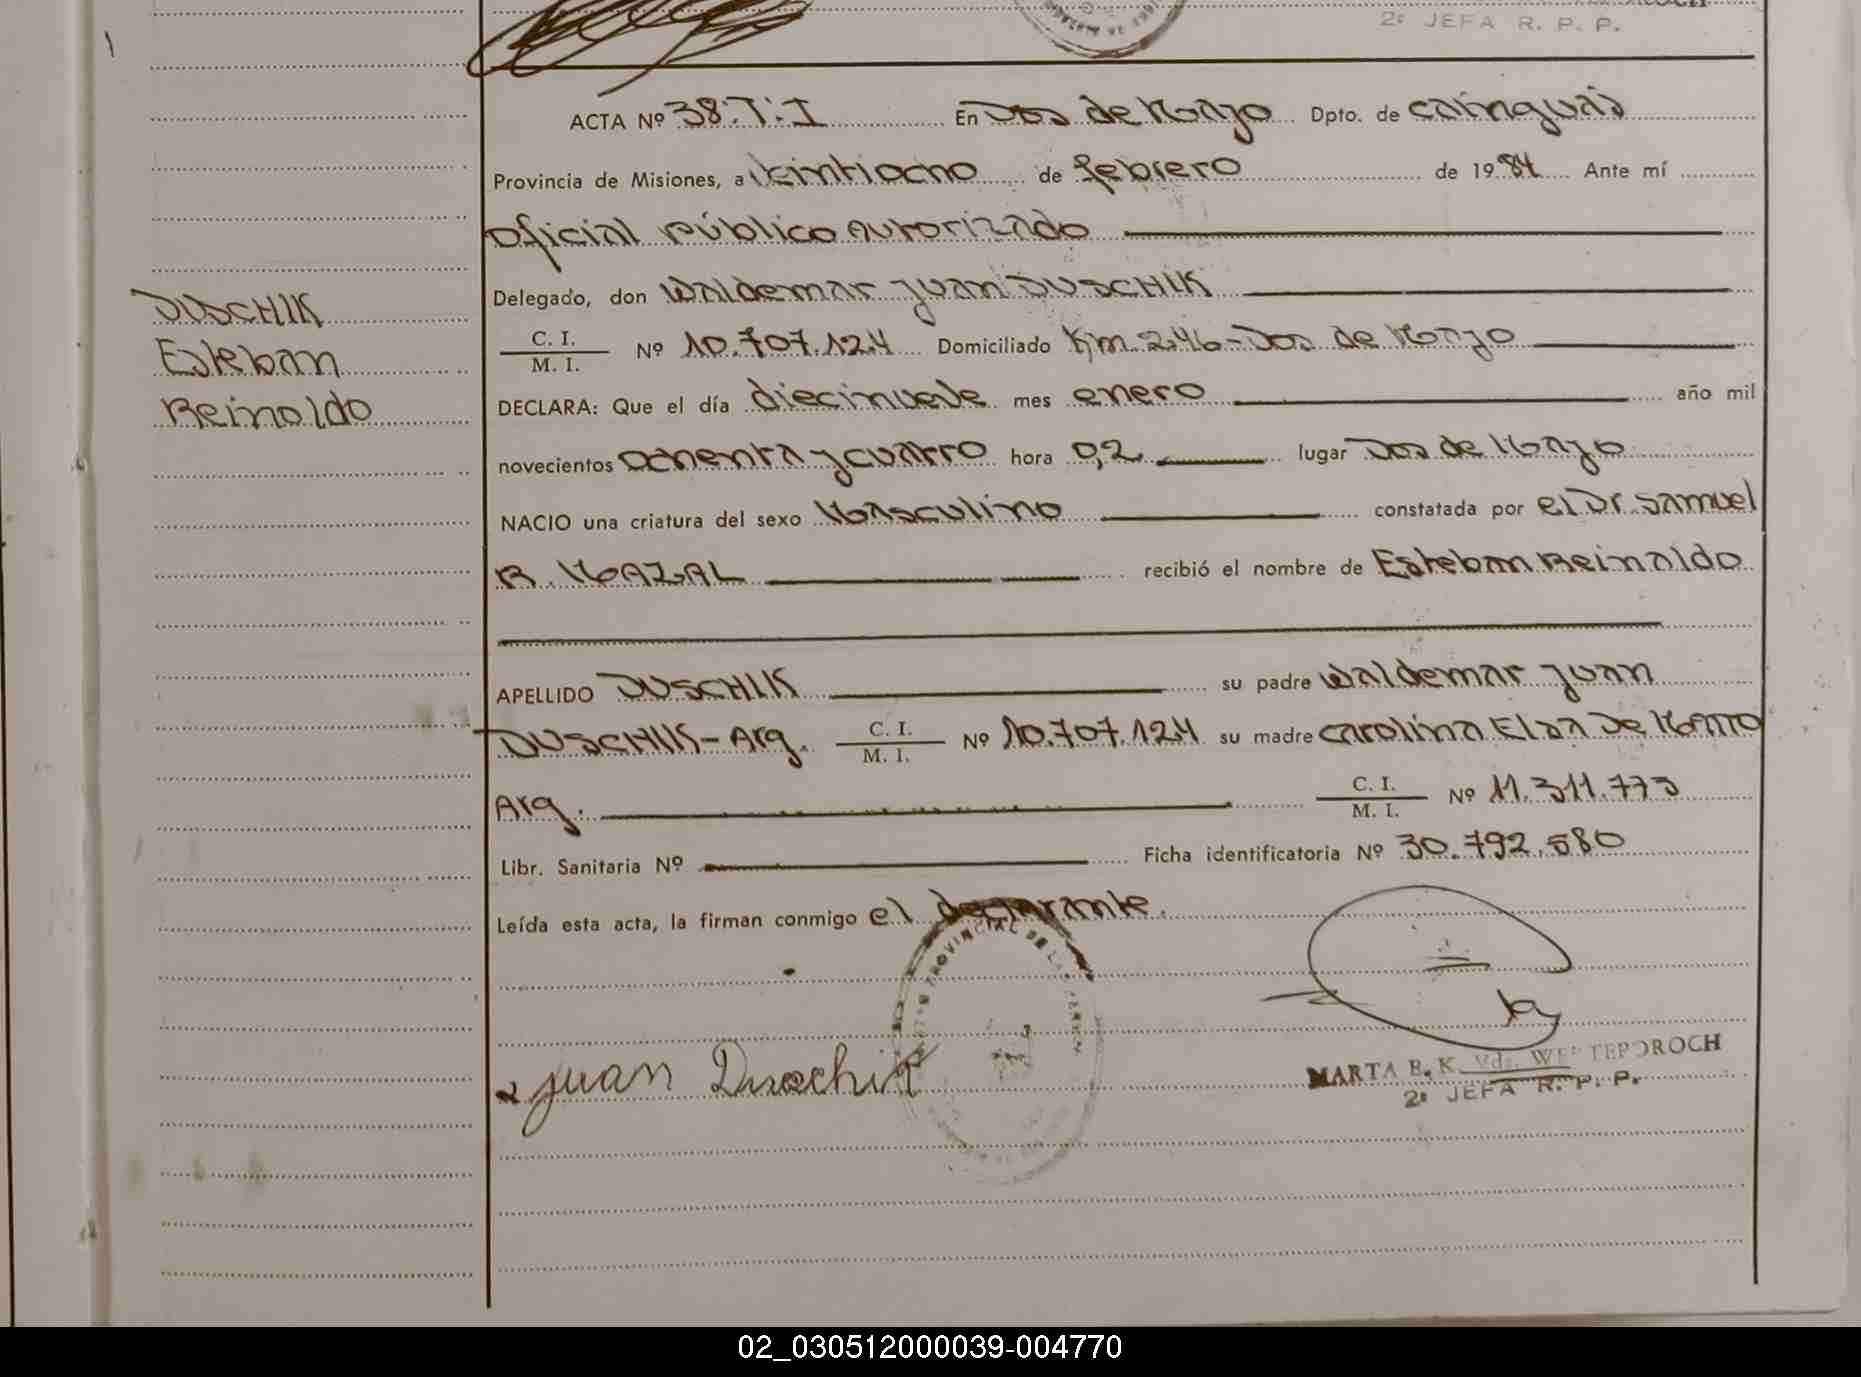 2º JEFA R. P. P.
ACTA Nº 38.T.I En Dos de Mayo Dpto. de cainguás
Provincia de Misiones, a veintiocho de febrero de 1984 Ante mí
oficial público autorizado
Delegado, don Waldemar Juan DUSCHIK
C. I.
M. I. Nº 10.707.124 Domiciliado Km. 246-Dos de Mayo
DECLARA: Que el día diecinueve mes enero año mil
novecientos ochenta y cuatro hora 0,2 lugar Dos de Mayo
NACIO una criatura del sexo Masculino constatada por el Dr. Samuel
R. MAZAL recibió el nombre de Esteban Reinaldo
DUSCHIK
Esteban
Reinaldo
APELLIDO DUSCHIK su padre Waldemar Juan
DUSCHIK-Arg. C. I.
M. I. Nº 10.707.124 su madre Carolina Elsa De
Arg. C. I.
M. I. Nº 11.311.773
Libr. Sanitaria Nº Ficha identificatoria Nº 30.792.580
Leída esta acta, la firman conmigo el declarante.
PROVINCIAL DE LAS PERSON
Juan Duschik
MARTA E. K. Vda. WESTEPDROCH
2º JEFA R. P. P.
02_030512000039-004770